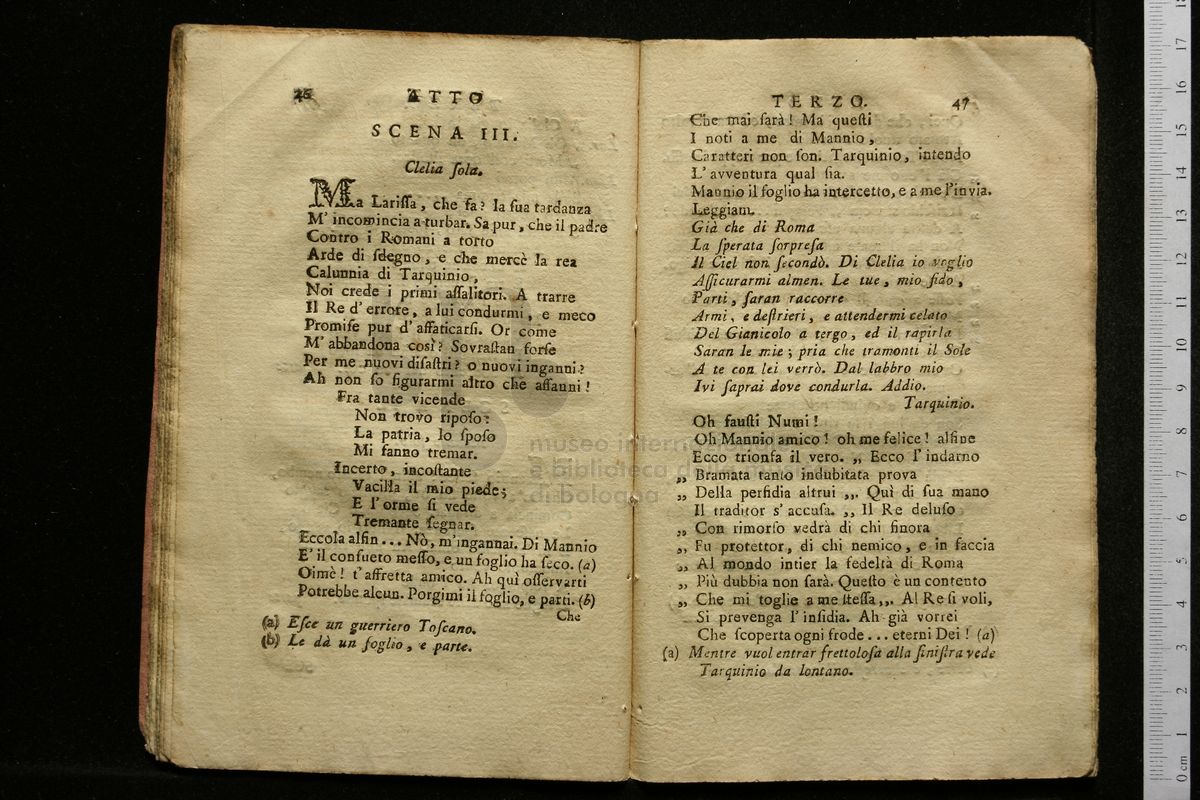 46 ATTO
SCENA III.
Clelia ſola.
Ma Lariſſa, che fa? la ſua tardanza
M' incomincia a turbar. Sa pur, che il padre
Contro i Romani a torto
Arde di ſdegno, e che mercè la rea
Calunnia di Tarquinio,
Noi crede i primi aſſalitori. A trarre
Il Re d' errore, a lui condurmi, e meco
Promiſe pur d' affaticarſi. Or come
M' abbandona così? Sovraſtan forſe
Per me nuovi diſaſtri? o nuovi inganni?
Ah non ſo figurarmi altro che affanni!
Fra tante vicende
Non trovo ripoſo:
La patria, lo ſpoſo
Mi fanno tremar.
Incerto, incoſtante
Vacilla il mio piede;
E l' orme ſi vede
Tremante ſegnar.
Eccola alfin... Nò, m'ingannai. Di Mannio
E' il conſueto meſſo, e un foglio ha ſeco. (a)
Oimè! t' affretta amico. Ah quì oſſervarti
Potrebbe alcun. Porgimi il foglio, e parti. (b)
Che
(a) Eſce un guerriero Toſcano.
(b) Le dà un foglio, e parte.
TERZO. 47
Che mai ſarà! Ma queſti
I noti a me di Mannio,
Caratteri non ſon. Tarquinio, intendo
L' avventura qual ſia.
Mannio il foglio ha intercetto, e a me l'invia.
Leggiam.
Già che di Roma
La ſperata ſorpreſa
Il Ciel non ſecondò. Di Clelia io voglio
Aſſicurarmi almen. Le tue, mio fido,
Parti, ſaran raccorre
Armi, e deſtrieri, e attendermi celato
Del Gianicolo a tergo, ed il rapirla
Saran le mie; pria che tramonti il Sole
A te con lei verrò. Dal labbro mio
Ivi ſaprai dove condurla. Addio.
Tarquinio.
Oh fauſti Numi!
Oh Mannio amico! oh me felice! alfine
Ecco trionfa il vero. „ Ecco l' indarno
„ Bramata tanto indubitata prova
„ Della perfidia altrui „. Quì di ſua mano
Il traditor s' accuſa. „ Il Re deluſo
„ Con rimorſo vedrà di chi finora
„ Fu protettor, di chi nemico, e in faccia
„ Al mondo intier la fedeltà di Roma
„ Più dubbia non ſarà. Queſto è un contento
„ Che mi toglie a me ſteſſa„. Al Re ſi voli,
Si prevenga l' inſidia. Ah già vorrei
Che ſcoperta ogni frode... eterni Dei! (a)
(a) Mentre vuol entrar frettoloſa alla ſiniſtra vede
Tarquinio da lontano.